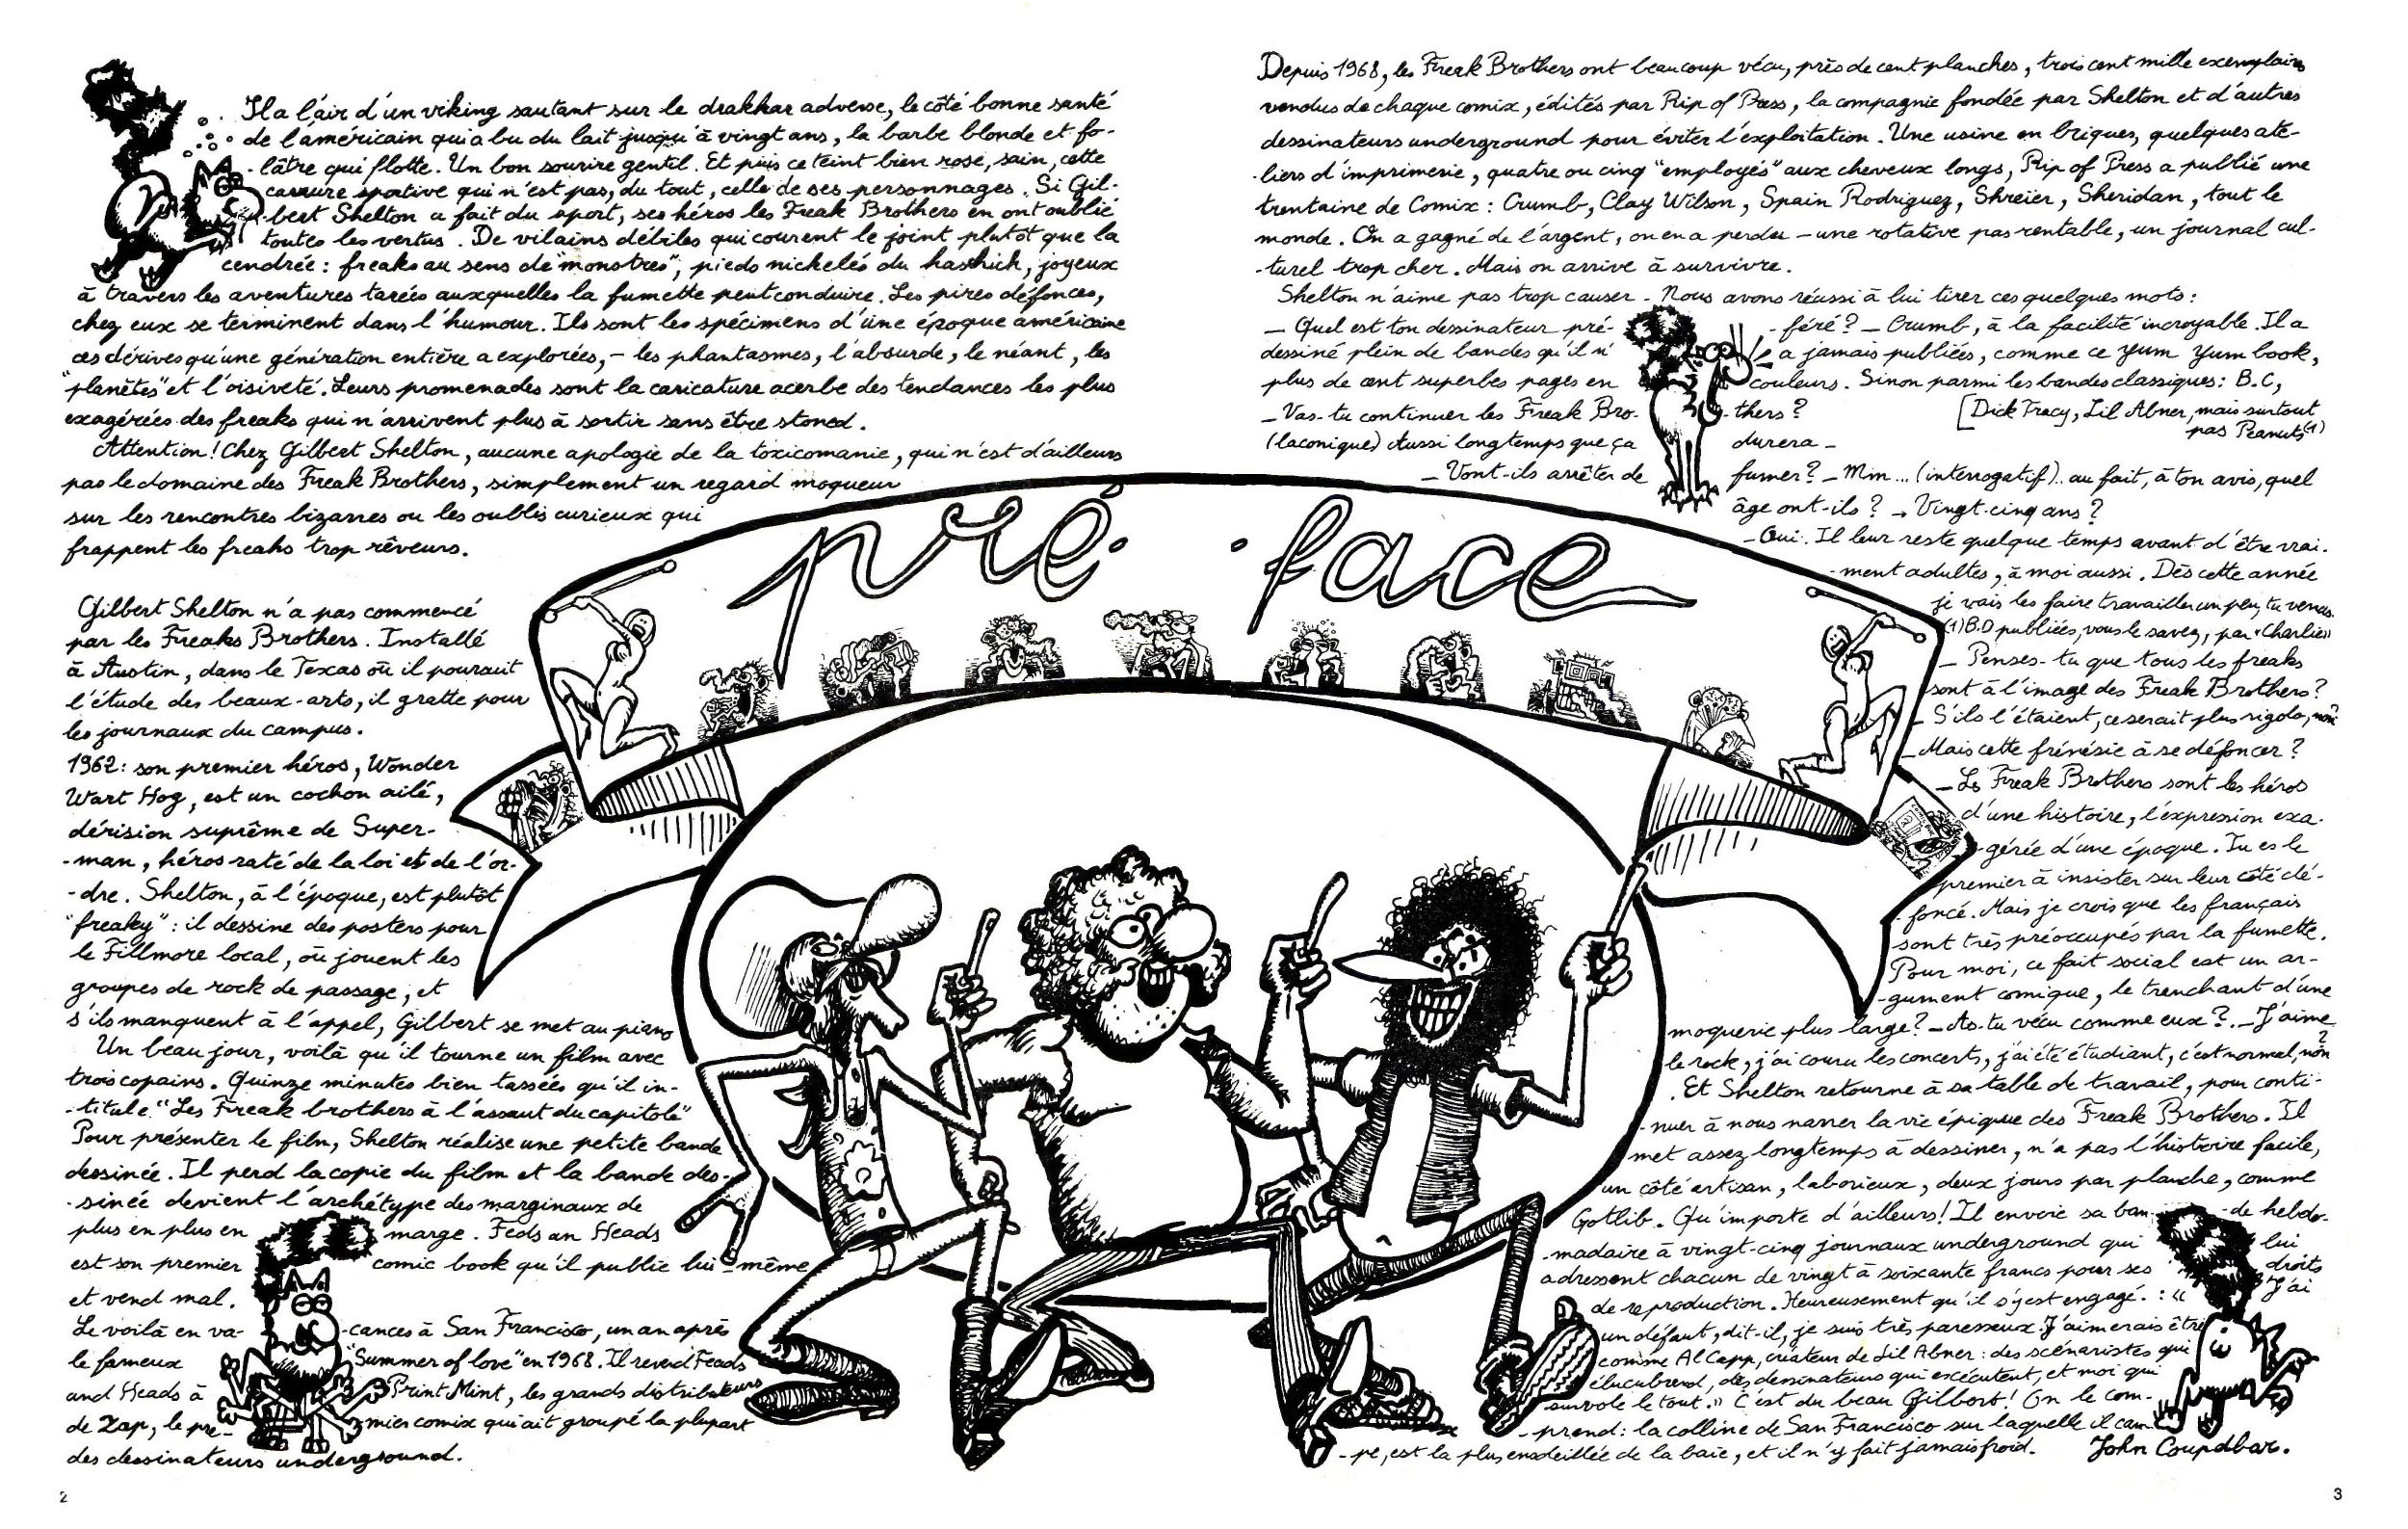 Il a l'air d'un viking sautant sur le drakkar adverse, le côté bonne santé
de l'américain qui a bu du lait jusqu'à vingt ans, la barbe blonde et fo-
-lâtre qui flotte. Un bon sourire gentil. Et puis ce teint bien rose, sain, cette
carrure sportive qui n'est pas, du tout, celle de ses personnages. Si Gil-
-bert Shelton a fait du sport, ses héros les Freak Brothers en ont oublié
toutes les vertus. De vilains débiles qui courent le joint plutôt que la
cendrée : freaks au sens de "monstres", pieds nickelés du haschich, joyeux
à travers les aventures tarées auxquelles la fumette peut conduire. Les pires défonces,
chez eux se terminent dans l'humour. Ils sont les spécimens d'une époque américaine
ces dérives qu'une génération entière a explorées, - les phantasmes, l'absurde, le néant, les
"planètes" et l'oisiveté. Leurs promenades sont la caricature acerbe des tendances les plus
exagérées des freaks qui n'arrivent plus à sortir sans être stoned.
Attention ! Chez Gilbert Shelton, aucune apologie de la toxicomanie, qui n'est d'ailleurs
pas le domaine des Freak Brothers, simplement un regard moqueur
sur les rencontres bizarres ou les oublis curieux qui
frappent les freaks trop rêveurs.
Gilbert Shelton n'a pas commencé
par les Freaks Brothers. Installé
à Austin, dans le Texas où il poursuit
l'étude des beaux-arts, il gratte pour
les journaux du campus.
1962 : son premier héros, Wonder
Wart Hog, est un cochon ailé,
dérision suprême de Super-
-man, héros raté de la loi et de l'or-
-dre. Shelton, à l'époque, est plutôt
"freaky" : il dessine des posters pour
le Fillmore local, où jouent les
groupes de rock de passage, et
s'ils manquent à l'appel, Gilbert se met au piano
Un beau jour, voilà qu'il tourne un film avec
trois copains. Quinze minutes bien tassées qu'il in-
-titule "Les Freak brothers à l'assaut du capitole"
Pour présenter le film, Shelton réalise une petite bande
dessinée. Il perd la copie du film et la bande des-
-sinée devient l'archétype des marginaux de
plus en plus en marge. Feds an Heads
est son premier comic book qu'il publie lui-même
et vend mal.
Le voilà en va- -cances à San Francisco, un an après
le fameux "Summer of love" en 1968. Il revend Feads
and Heads à Print Mint, les grands distributeurs
de Zap, le pre- -mier comix qui ait groupé la plupart
des dessinateurs underground.
pré. .face
Depuis 1968, les Freak Brothers ont beaucoup vécu, près de cent planches, trois cent mille exemplaires
vendus de chaque comix, édités par Rip of Press, la compagnie fondée par Shelton et d'autres
dessinateurs underground pour éviter l'exploitation. Une usine en briques, quelques ate-
-liers d'imprimerie, quatre ou cinq "employés" aux cheveux longs, Rip of Press a publié une
trentaine de Comix : Crumb, Clay Wilson, Spain Rodriguez, Shreier, Sheridan, tout le
monde. On a gagné de l'argent, on en a perdu - une rotative pas rentable, un journal cul-
-turel trop cher. Mais on arrive à survivre.
Shelton n'aime pas trop causer - Nous avons réussi à lui tirer ces quelques mots :
- Quel est ton dessinateur pré- -féré ? - Crumb, à la facilité incroyable. Il a
dessiné plein de bandes qu'il n' a jamais publiées, comme ce Yum Yum book,
plus de cent superbes pages en couleurs. Sinon parmi les bandes classiques : B.C,
[Dick Tracy, Lil Abner, mais surtout
pas Peanuts (1)
- Vas-tu continuer les Freak Bro- -thers ?
(laconique) Aussi longtemps que ça durera -
- Vont-ils arrêter de fumer ? - Mm... (interrogatif).. au fait, à ton avis, quel
âge ont-ils ? - Vingt-cinq ans ?
- Oui. Il leur reste quelque temps avant d'être vrai-
-ment adultes, à moi aussi. Dès cette année
je vais les faire travailler un peu, tu verras.
(1) B.D publiées, vous le savez, par "Charlie"
- Penses-tu que tous les freaks
sont à l'image des Freak Brothers ?
- S'ils l'étaient, ce serait plus rigolo, non
- Mais cette frénésie à se défoncer ?
- Les Freak Brothers sont les héros
d'une histoire, l'expression exa-
-gérée d'une époque. Tu es le
premier à insister sur leur côté dé-
-foncé. Mais je crois que les français
sont très préoccupés par la fumette.
Pour moi, ce fait social est un ar-
-gument comique, le tranchant d'une
moquerie plus large ? - As-tu vécu comme eux ? - J'aime
le rock, j'ai couru les concerts, j'ai été étudiant, c'est normal, non ?
Et Shelton retourne à sa table de travail, pour conti-
-nuer à nous narrer la vie épique des Freak Brothers. Il
met assez longtemps à dessiner, n'a pas l'histoire facile,
un côté artisan, laborieux, deux jours par planche, comme
Gotlib. Qu'importe d'ailleurs ! Il envoie sa ban- -de hebdo-
-madaire à vingt-cinq journaux underground qui lui
adressent chacun de vingt à soixante francs pour ses droits
de reproduction. Heureusement qu'il s'y est engagé. : "J'ai
un défaut, dit-il, je suis très paresseux. J'aimerais être
comme Al Capp, créateur de Lil Abner : des scénaristes qui
élucubrent, des dessinateurs qui exécutent, et moi qui
survole le tout." C'est du beau Gilbert ! On le com-
-prend : la colline de San Francisco sur laquelle il cam-
-pe, est la plus ensoleillée de la baie, et il n'y fait jamais froid.
John Coupdbar.
2
3